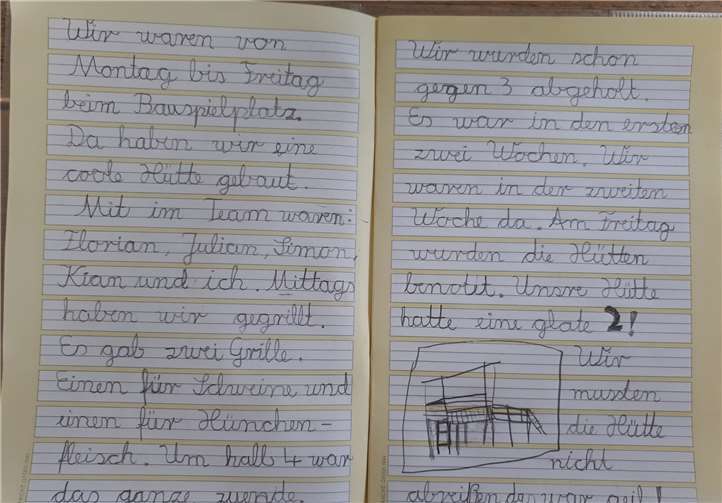 Wir waren von
Montag bis Freitag
beim Bauspielplatz.
Da haben wir eine
coole Hütte gebaut.
Mit im Team waren:
Florian, Julian, Simon,
Kian und ich. Mittags
haben wir gegrillt.
Es gab zwei Grille.
Einen für Schweine und
einen für Hünchen-
fleisch. Um halb 4 war
das ganze zuende.
Wir wurden schon
gegen 3 abgeholt.
Es war in den ersten
zwei Wochen. Wir
waren in der zweiten
Woche da. Am Freitag
wurden die Hütten
benotet. Unsre Hütte
hatte eine glate 2!
Wir
musden
die Hütte
nicht
abreißen des war geil!